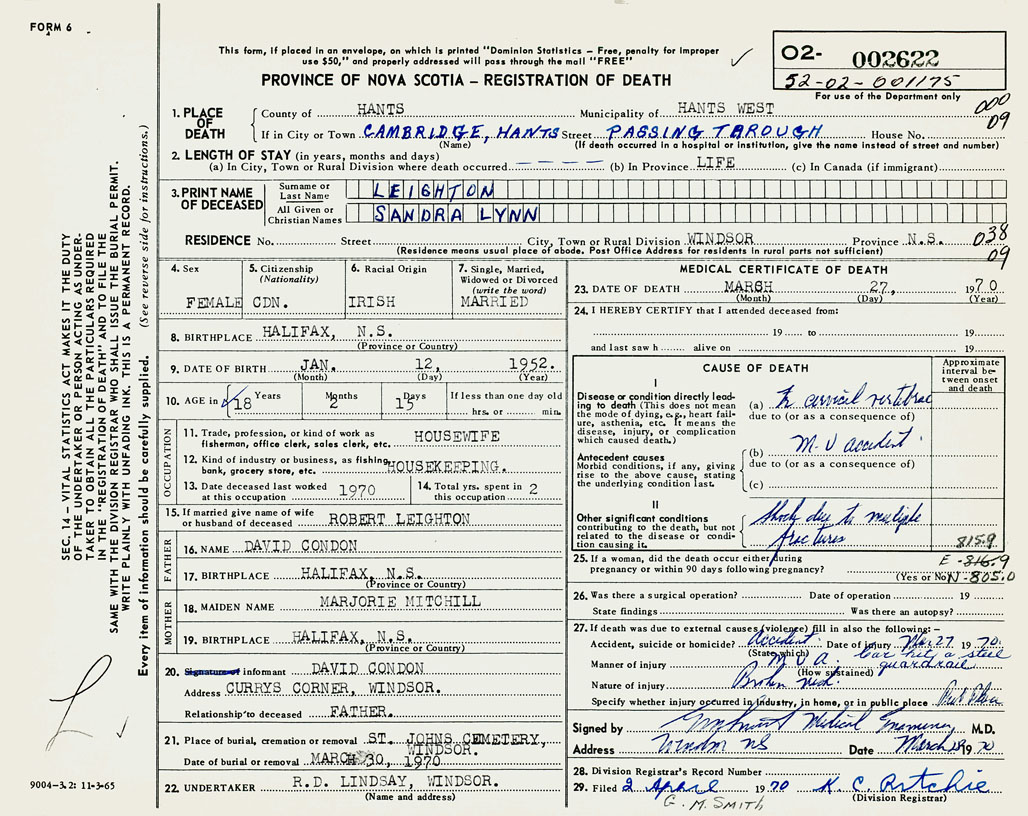 FORM 6
This form, if placed in an envelope, on which is printed "Dominion Statistics – Free, penalty for improper
use $50," and properly addressed will pass through the mail "FREE"
PROVINCE OF NOVA SCOTIA – REGISTRATION OF DEATH
O2- 002622
52-02-001175
For use of the Department only
1. PLACE OF DEATH County of HANTS Municipality of HANTS WEST 000
09
If in City or Town CAMBRIDGE, HANTS Street PASSING THROUGH House No.
(Name) (If death occurred in a hospital or institution, give the name instead of street and number)
2. LENGTH OF STAY (in years, months and days)
(a) In City, Town or Rural Division where death occurred – – – – (b) In Province LIFE (c) In Canada (if immigrant)
3. PRINT NAME OF DECEASED Surname or Last Name LEIGHTON
All Given or Christian Names SANDRA LYNN
RESIDENCE No. Street City, Town or Rural Division WINDSOR Province N.S. 038
09
(Residence means usual place of abode. Post Office Address for residents in rural parts not sufficient)
4. Sex FEMALE
5. Citizenship (Nationality) CDN.
6. Racial Origin IRISH
7. Single, Married, Widowed or Divorced (write the word) MARRIED
8. BIRTHPLACE HALIFAX, N.S.
(Province or Country)
9. DATE OF BIRTH JAN. 12, 1952.
(Month) (Day) (Year)
10. AGE in 18 Years Months 2 15 Days If less than one day old
hrs. or min.
OCCUPATION
11. Trade, profession, or kind of work as fisherman, office clerk, sales clerk, etc. HOUSEWIFE
12. Kind of industry or business, as fishing, bank, grocery store, etc. HOUSEKEEPING.
13. Date deceased last worked at this occupation 1970
14. Total yrs. spent in this occupation 2
15. If married give name of wife or husband of deceased ROBERT LEIGHTON
FATHER
16. NAME DAVID CONDON
17. BIRTHPLACE HALIFAX, N.S.
(Province or Country)
MOTHER
18. MAIDEN NAME MARJORIE MITCHILL
19. BIRTHPLACE HALIFAX, N.S.
(Province or Country)
20. Signature of informant DAVID CONDON
Address CURRYS CORNER, WINDSOR.
Relationship to deceased FATHER.
21. Place of burial, cremation or removal ST. JOHNS CEMETERY,
WINDSOR.
Date of burial or removal MARCH 30, 1970
22. UNDERTAKER R.D. LINDSAY, WINDSOR.
(Name and address)
MEDICAL CERTIFICATE OF DEATH
23. DATE OF DEATH MARCH 27, 1970
(Month) (Day) (Year)
24. I HEREBY CERTIFY that I attended deceased from:
19 to 19
and last saw h alive on 19
CAUSE OF DEATH
Approximate interval between onset and death
I
Disease or condition directly leading to death (This does not mean the mode of dying, e.g., heart failure, asthenia, etc. It means the disease, injury, or complication which caused death.)
(a) Fr cervical vertebrae
due to (or as a consequence of)
Antecedent causes
Morbid conditions, if any, giving rise to the above cause, stating the underlying condition last.
(b) M.V accident
due to (or as a consequence of)
(c)
II
Other significant conditions
contributing to the death, but not related to the disease or condition causing it.
Shock due to multiple
fractures
815.9
25. If a woman, did the death occur either during pregnancy or within 90 days following pregnancy? E-816.9
(Yes or No) N-805.0
26. Was there a surgical operation? Date of operation 19
State findings Was there an autopsy?
27. If death was due to external causes (violence) fill in also the following:–
Accident, suicide or homicide? Accident Date of injury Mar 27 1970.
(State which) Car hit a steel
Manner of injury M V A. guardrail
(How sustained)
Nature of injury Broken neck.
Specify whether injury occurred in industry, in home, or in public place
Signed by Medical Examiner M.D.
Address Windsor NS Date March 1970
28. Division Registrar's Record Number
29. Filed 2 April 1970 K. C. Ritchie
G. M. SMITH (Division Registrar)
SEC. 14 – VITAL STATISTICS ACT MAKES IT THE DUTY
OF THE UNDERTAKER OR PERSON ACTING AS UNDER-
TAKER TO OBTAIN ALL THE PARTICULARS REQUIRED
IN THE "REGISTRATION OF DEATH" AND TO FILE THE
SAME WITH THE DIVISION REGISTRAR WHO SHALL ISSUE THE BURIAL PERMIT.
WRITE PLAINLY WITH UNFADING INK. THIS IS A PERMANENT RECORD.
Every item of information should be carefully supplied. (See reverse side for instructions.)
9004-3.2: 11-3-65